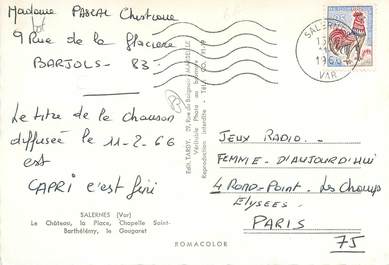 Madame PASCAL Christiane
9 Rue de la Glaciere
BARJOLS - 83 -
Le titre de la chanson
diffusée le 11-2-66
est
CAPRI c'est fini
SALERNES (Var)
Le Château, la Place, Chapelle Saint-
Barthélémy, le Gougaret
ROMACOLOR
Edit. TARDY, 29, Rue du Baignoir - MARSEILLE
Véritable Photo au Bromure
Reproduction interdite - Tél.
SALERNES
1966
VAR
JEUX RADIO -
FEMME - D'AUJOURD'HUI
4 ROND-POINT - Les Champs
Elysees -
PARIS
75